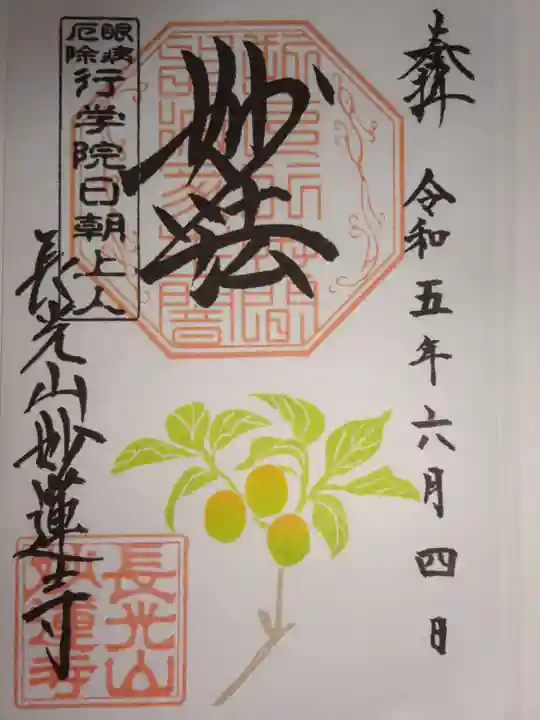 奉拝
令和五年六月四日
妙法
眼病
厄除
行学院日朝上人
長光山妙蓮寺
長光山
妙蓮寺